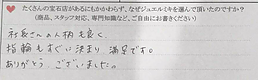 たくさんの宝石店があるにもかかわらず、なぜジュエルミキを選んで頂いたのですか?
(商品、スタッフ対応、専門知識など、ご自由にお書きください)
社長さんの人柄も良く、
指輪もすぐに決まり、満足です。
ありがとうございました。